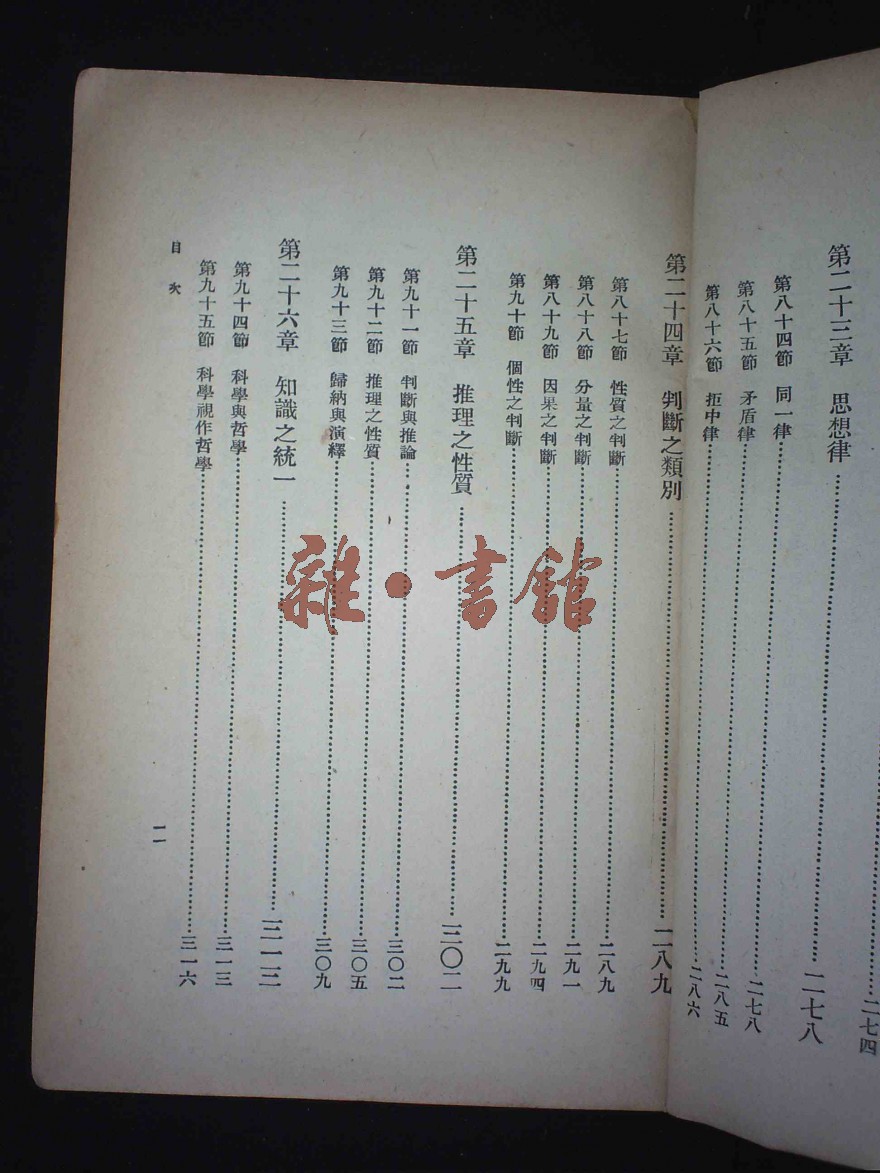 二七四
第二十三章　思想律……二七八
第八十四節　同一律……二七八
第八十五節　矛盾律……二八五
第八十六節　拒中律……二八六
第二十四章　判斷之類別……二八九
第八十七節　性質之判斷……二八九
第八十八節　分量之判斷……二九一
第八十九節　因果之判斷……二九四
第九十節　個性之判斷……二九九
第二十五章　推理之性質……三〇二
第九十一節　判斷與推論……三〇二
第九十二節　推理之性質……三〇五
第九十三節　歸納與演繹……三〇九
第二十六章　知識之統一……三一三
第九十四節　科學與哲學……三一三
第九十五節　科學視作哲學……三一六
目次
一一
雜·書館